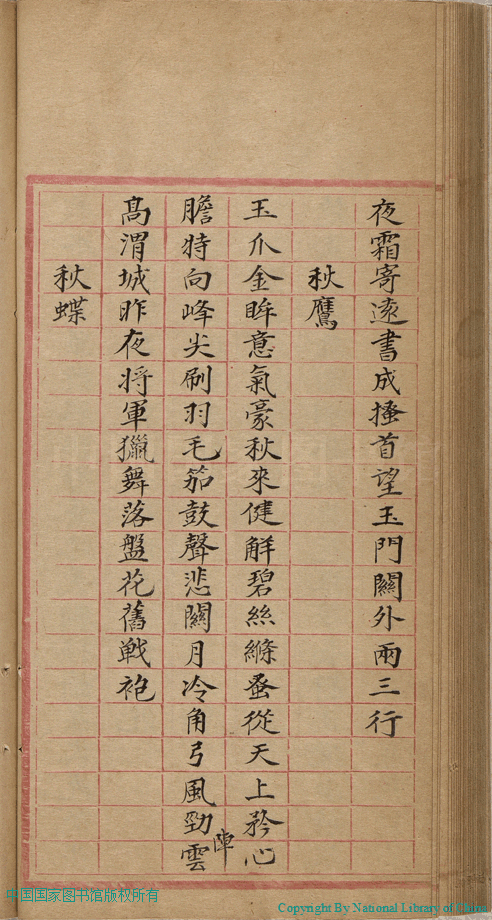 夜霜寄遠書成搔首望玉門關外兩三行
秋鷹
玉爪金眸意氣豪秋來健觧碧絲絛蚤從天上矜心
膽特向峰尖刷羽毛笳鼓聲悲關月冷角弓風勁雲
陣
高渭城昨夜将軍獵舞落盤花舊戰袍
秋蝶
中国国家图书馆版权所有
Copyright By National Library of China